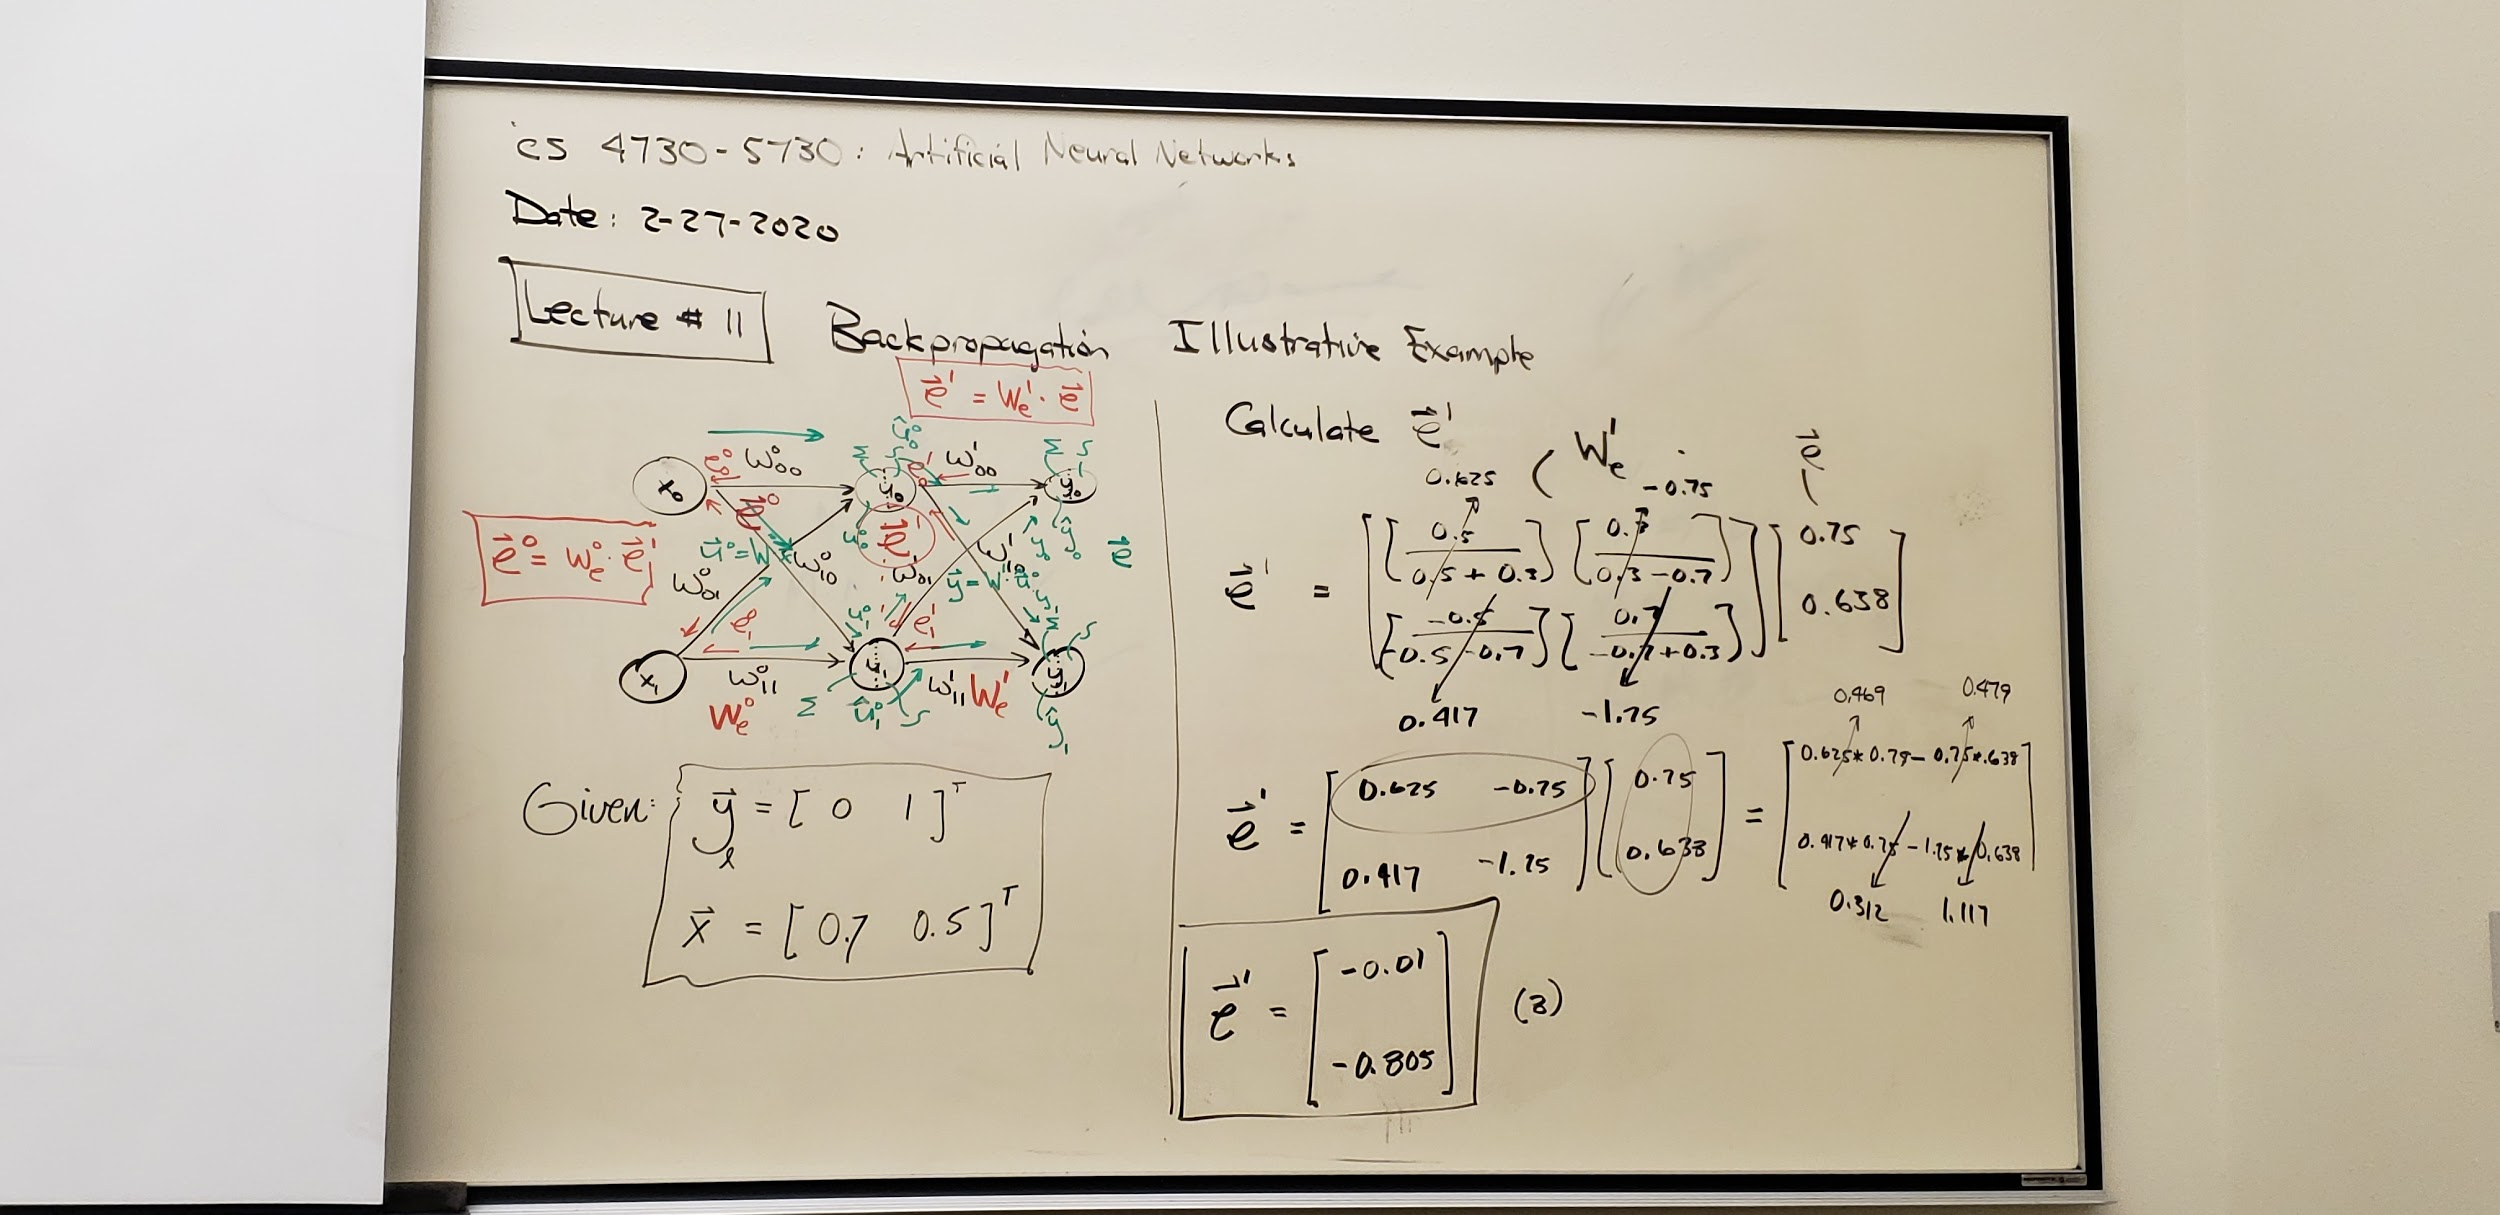 CS 4730-5730: Artificial Neural Networks
Date: 2-27-2020
Lecture # 11 Backpropagation Illustrative Example
e⃗¹ = Wₑ¹ · e⃗
w⁰₀₀ w¹₀₀
x₀ u₀ y₀
e⃗⁰ = Wₑ⁰ · e⃗¹
w⁰₀₁ w⁰₁₀ w¹₀₁ w¹₁₀ e⃗
x₁ u₁ y₁
w⁰₁₁ w¹₁₁
Wₑ⁰ Σ û⁰₁ S Wₑ¹ ŷ₁
Given: y⃗ₗ = [ 0 1 ]ᵀ
x⃗ = [ 0.7 0.5 ]ᵀ
Calculate e⃗¹
Wₑ¹ · e⃗
0.625 -0.75
e⃗¹ = [ [ 0.5 / 0.5 + 0.3 ] [ 0.3 / 0.3 - 0.7 ] ] [ 0.75
[ -0.5 / -0.5 - 0.7 ] [ 0.7 / -0.7 + 0.3 ] 0.638 ]
0.417 -1.75
0.469 0.479
e⃗¹ = [ 0.625 -0.75 ] [ 0.75 ] = [ 0.625 * 0.75 - 0.75 * .638 ]
0.417 -1.75 0.638 0.417 * 0.75 - 1.75 * 0.638
0.312 1.117
e⃗¹ = [ -0.01
-0.805 ] (3)